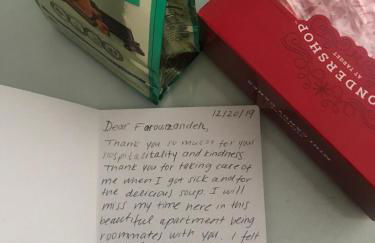 WONDERSHOP
AT TARGET
12/20/19
Dear Farouzandeh,
Thank you so much for you
hospitality and kindness
Thank you for taking care of
me when I got sick and for
the delicious soup. I will
miss my time here in this
beautiful apartment being
roommates with you. I felt
MINI CANDY CANES